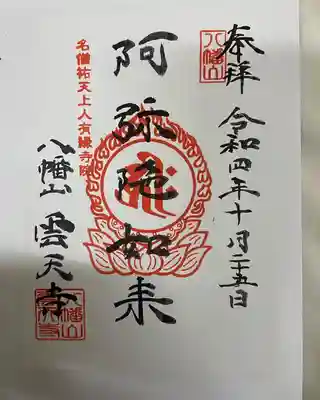 奉拝
令和四年十月二十五日
八幡山
阿弥陀如来
名僧祐天上人有縁寺院
八幡山
雲天寺